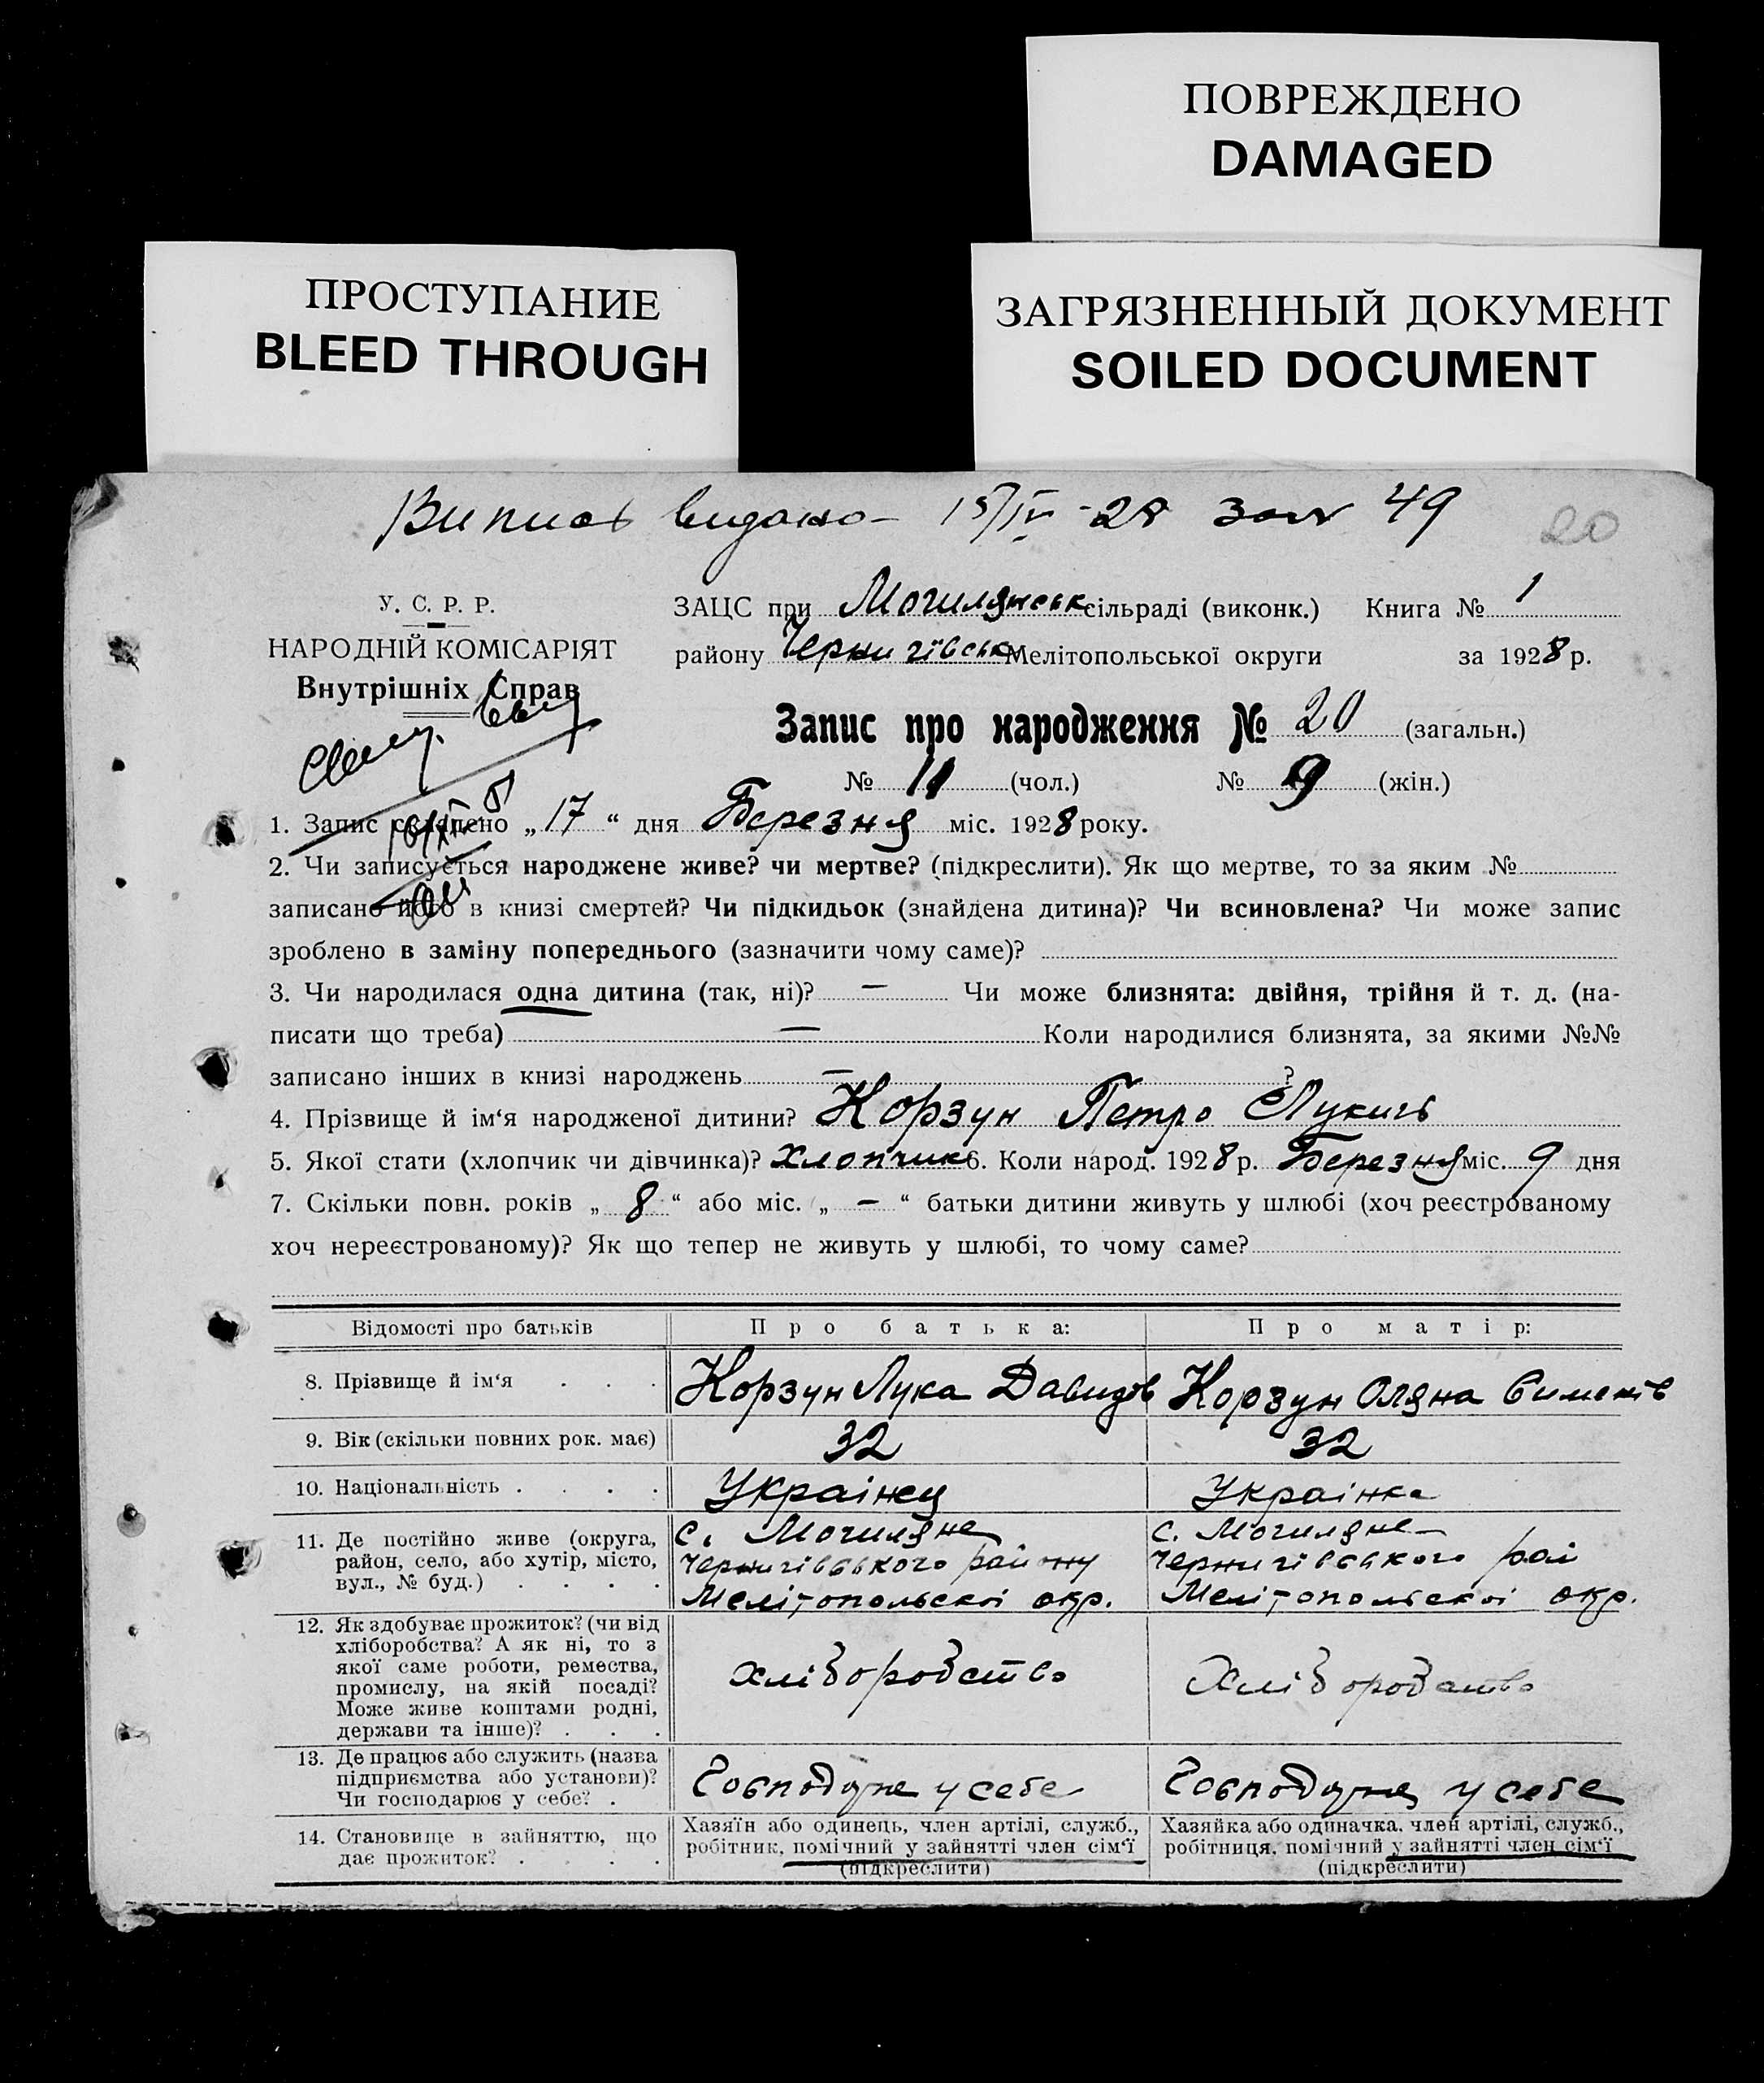 ПОВРЕЖДЕНО
DAMAGED
ПРОСТУПАНИЕ
BLEED THROUGH
ЗАГРЯЗНЕННЫЙ ДОКУМЕНТ
SOILED DOCUMENT
Випись видано - 15/IV - 28 49
20
У. С. Р. Р.
НАРОДНІЙ КОМІСАРІЯТ
Внутрішніх Справ
ЗАЦС при Могилянськ сільраді (виконк.) Книга № 1
району Чернигівськ Мелітопольської округи за 1928 р.
Запис про народження № 20 (загальн.)
№ 11 (чол.) № 9 (жін.)
1. Запис складено „ 17 “ дня Березня міс. 1928 року.
2. Чи записується народжене живе? чи мертве? (підкреслити). Як що мертве, то за яким №
записано його в книзі смертей? Чи підкидьок (знайдена дитина)? Чи всиновлена? Чи може запис
зроблено в заміну попереднього (зазначити чому саме)?
3. Чи народилася одна дитина (так, ні)? — Чи може близнята: двійня, трійня й т. д. (на-
писати що треба) — Коли народилися близнята, за якими №№
записано інших в книзі народжень — ?
4. Прізвище й ім‘я народженої дитини? Корзун Петро Лукич
5. Якої стати (хлопчик чи дівчинка)? Хлопчик 6. Коли народ. 1928 р. Березня міс. 9 дня
7. Скільки повн. років „ 8 “ або міс. „ — “ батьки дитини живуть у шлюбі (хоч реєстрованому
хоч нереєстрованому)? Як що тепер не живуть у шлюбі, то чому саме?
Відомості про батьків Про батька: Про матір:
8. Прізвище й ім‘я . . . Корзун Лука Давидов Корзун Оляна
9. Вік (скільки повних рок. має) 32 32
10. Національність . . . . Українец Українка
11. Де постійно живе (округа, с. Могиляне с. Могиляне
район, село, або хутір, місто, Чернигівського району Чернигівського рай
вул., № буд.) . . . . Мелітопольскої окр. Мелітопольскої окр.
12. Як здобуває прожиток? (чи від
хліборобства? А як ні, то з
якої саме роботи, ремества, хліборобство Хліборобство
промислу, на якій посаді?
Може живе коштами родні,
держави та інше)? . . .
13. Де працює або служить (назва
підприємства або установи)? Господарює у себе Господарює у себе
Чи господарює у себе? .
14. Становище в зайняттю, що Хазяїн або одинець, член артілі, служб., Хазяйка або одиначка, член артілі, служб.,
дає прожиток? . . . . робітник, помічний у зайнятті член сім‘ї робітниця, помічний у зайнятті член сім‘ї
(підкреслити) (підкреслити)